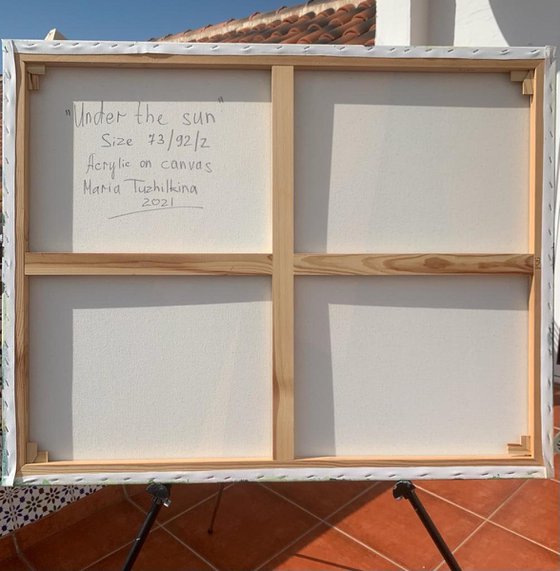 "Under the sun"
Size 73/92/2
Acrylic on canvas
Maria Tuzhilkina
2021